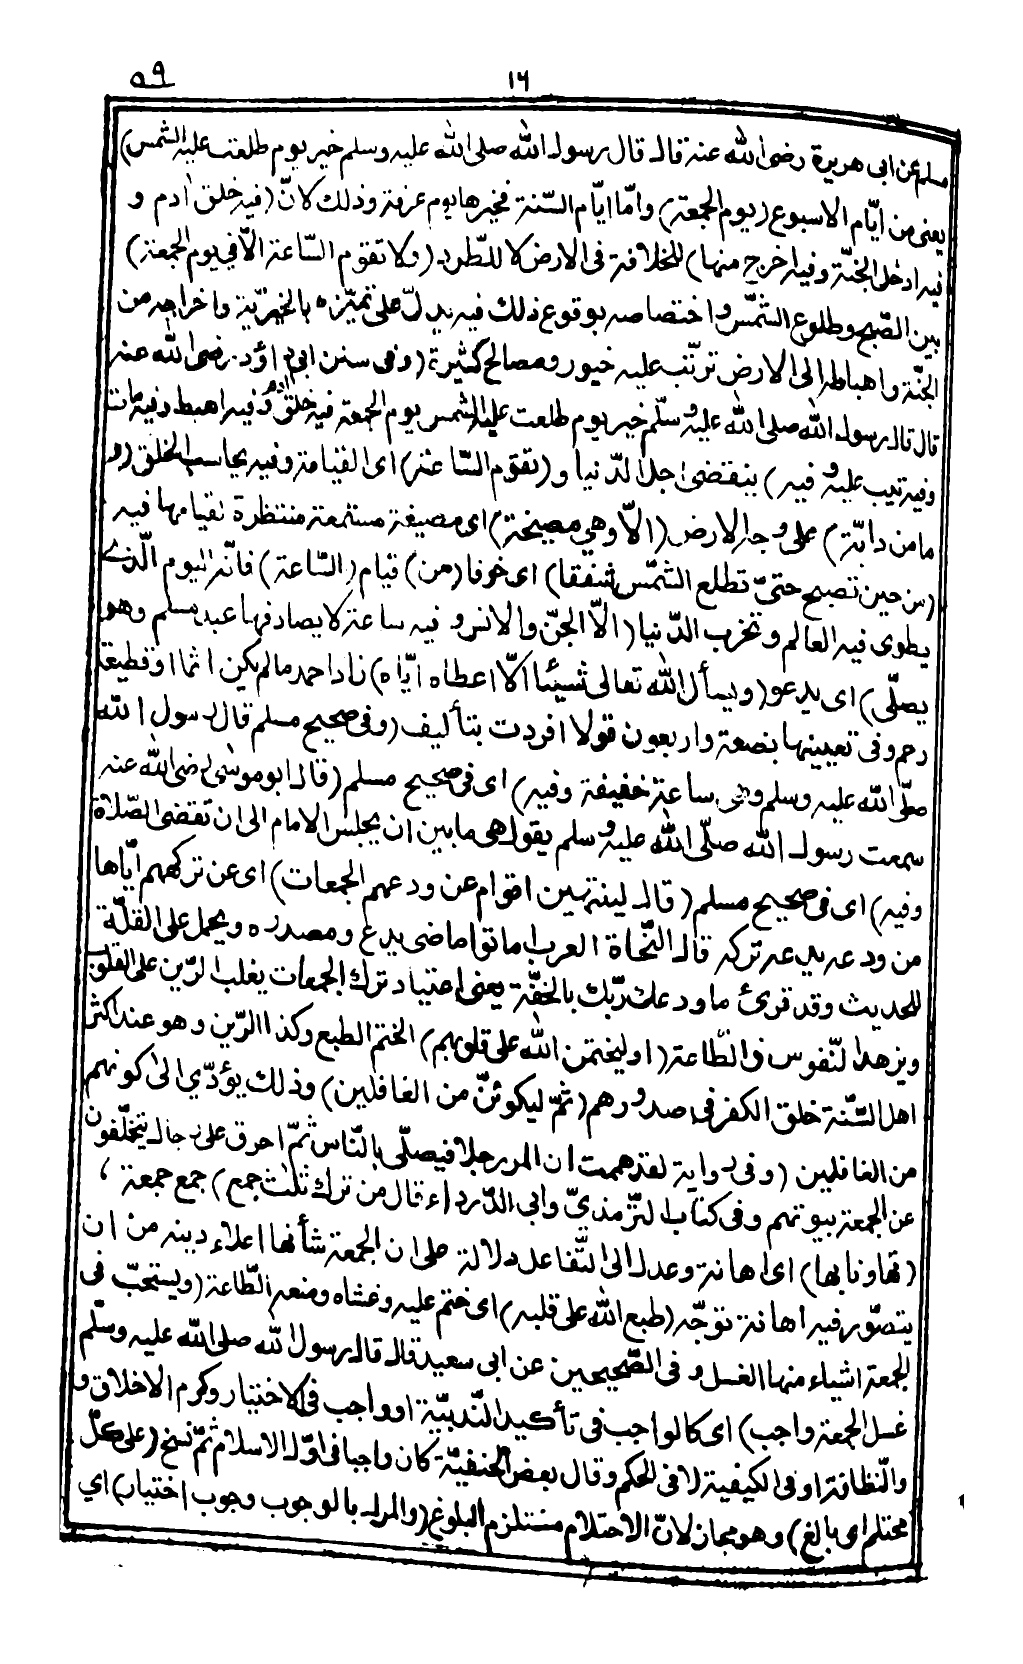 ٥٩
١٦
مسلم عن ابى هريرة رضى الله عنه قال قال رسول الله صلى الله عليه وسلم خير يوم طلعت عليه الشمس)
يعنى من ايّام الاسبوع (يوم الجمعة) وامّا ايّام السّنة فخيرها يوم عرفة وذلك لانّ (فيه خلق ادم و
فيه ادخل الجنّة وفيه اخرج منها) للخلافة فى الارض لا للطّرد (ولا تقوم السّاعة الّا في يوم الجمعة)
بين الصّبح وطلوع الشّمس واختصاصه بوقوع ذلك فيه يدلّ على تميّزه بالخيريّة واخراجه من
الجنّة واهباطه الى الارض ترتّب عليه خيور ومصالح كثيرة (وفى سنن ابى داؤد رضى الله عنه
قال قال رسول الله صلى الله عليه وسلّم خير يوم طلعت عليه الشمس يوم الجمعة فيه خلق ادم وفيه اهبط وفيه مات
وفيه تيب عليه وفيه) ينقضى اجل الدّنيا و (تقوم السّاعة) اى القيامة وفيه يحاسب الخلق (و
ما من دابّة) على وجه الارض (الّا وهي مصيخة) اى مصيغة مستمعة منتظرة لقيامها فيه
(من حين تصبح حتىّ تطلع الشّمس شفقا) اى خوفا (من) قيام (السّاعة) فانّه اليوم الّذى
يطوى فيه العالم وتخرب الدّنيا (الّا الجنّ والانس وفيه ساعة لا يصادفها عبد مسلم وهو
يصلّى) اى يدعو (ويسأل الله تعالى شيئا الّا اعطاه ايّاه) زاد احمد ما لم يكن اثما او قطيعة
رحم وفى تعيينها بضعة واربعون قولا افردت بتأليف (وفى صحيح مسلم قال رسول الله
صلّى الله عليه وسلم وهى ساعة خفيفة وفيه) اى فى صحيح مسلم (قال ابو موسى رضى الله عنه
سمعت رسول الله صلّى الله عليه وسلم يقول هى ما بين ان يجلس الامام الى ان تقضى الصّلاة
وفيه) اى فى صحيح مسلم (قال لينتهين اقوام عن ودعهم الجمعات) اى عن تركهم ايّاها
من ودعه يدعه تركه قال النّحاة العرب اماتوا ماضى يدع ومصدره ويحمل على القلّة
للحديث وقد قرئ ما ودعك ربّك بالخفّة يعنى اعتياد ترك الجمعات يغلب الرّين على القلوب
ويزهد النّفوس فى الطّاعة (او ليختمن الله على قلوبهم) الختم الطبع وكذا الرّين وهو عند اكثر
اهل السّنّة خلق الكفر فى صدورهم (ثمّ ليكوننّ من الغافلين) وذلك يؤدّي الى كونهم
من الغافلين (وفى رواية لقد هممت ان آمر رجلا فيصلّى بالنّاس ثمّ احرق على رجال يتخلّفون
عن الجمعة بيوتهم وفى كتاب التّرمذيّ وابى الدّرداء قال من ترك ثلث جمع) جمع جمعة
(تهاونا بها) اى اهانة وعدل الى التّفاعل دلالة على ان الجمعة شأنها اعلاء دينه من ان
يتصوّر فيه اهانة توجّه (طبع الله على قلبه) اى ختم عليه وغشاه ومنعه الطّاعة (ويستحبّ فى
الجمعة اشياء منها الغسل وفى الصّحيحين عن ابى سعيد قال قال رسول الله صلى الله عليه وسلّم
غسل الجمعة واجب) اى كالواجب فى تأكيد النّدبيّة او واجب فى الاختيار وكرم الاخلاق و
والنّظافة او فى الكيفية لا فى الحكم وقال بعض الحنفيّة كان واجبا فى اوّل الاسلام ثمّ نسخ (على كلّ
محتلم اى بالغ) وهو مجاز لانّ الاحتلام مستلزم البلوغ (والمراد بالوجوب وجوب اختيار) اي